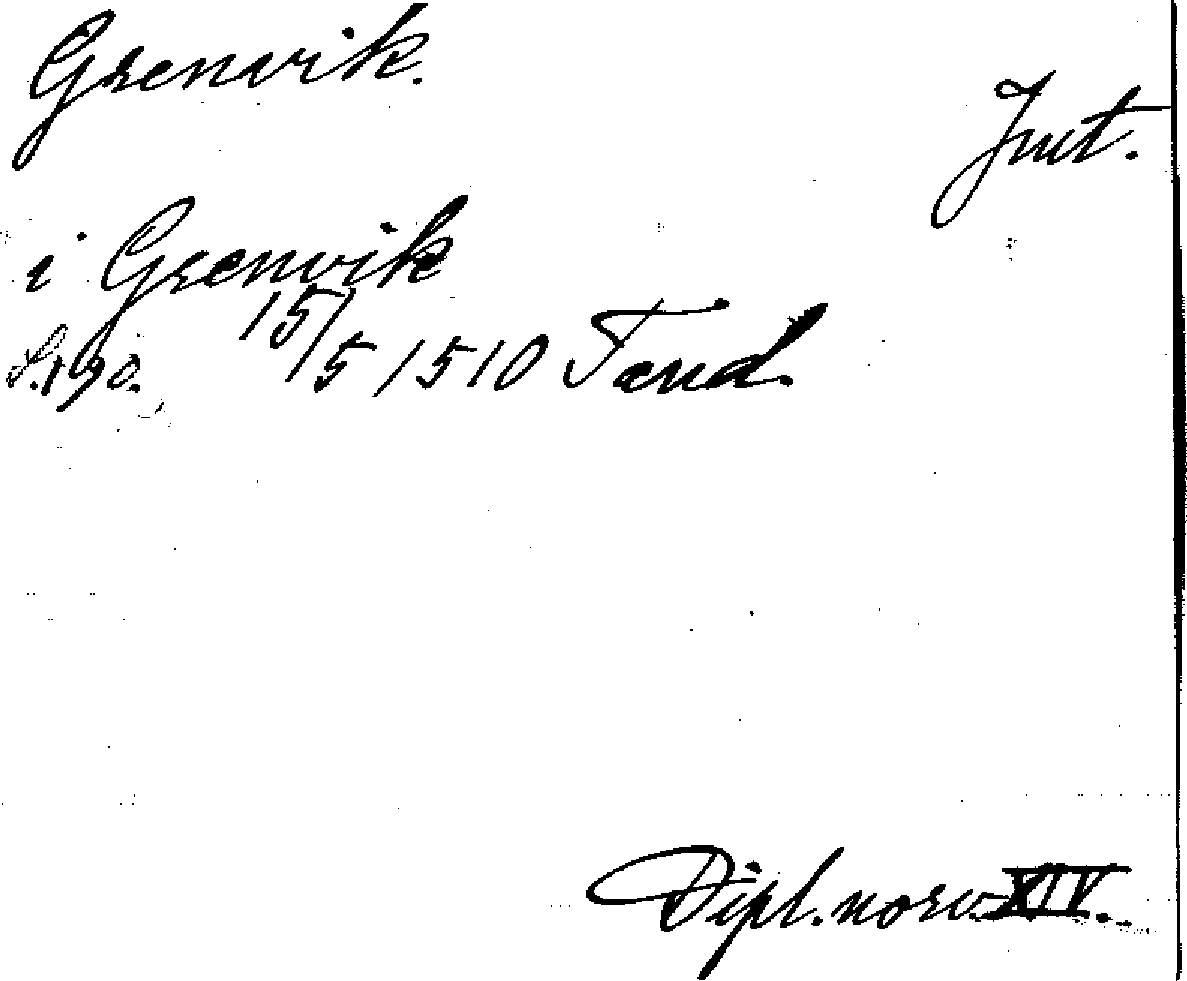 Grenvik.
Jmt.
i Grenvik
S. 190. 15/5 1510 Tand.
Dipl. norv. XIV.